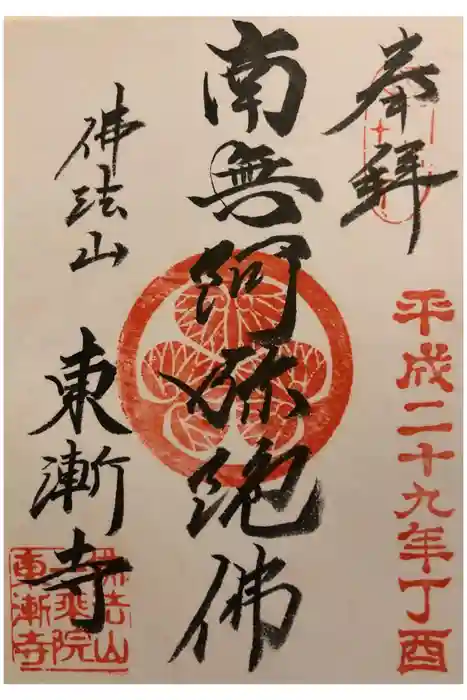 奉拜
平成二十九年丁酉
南無阿弥陀佛
佛法山
東漸寺
佛法山
一乘院
東漸寺